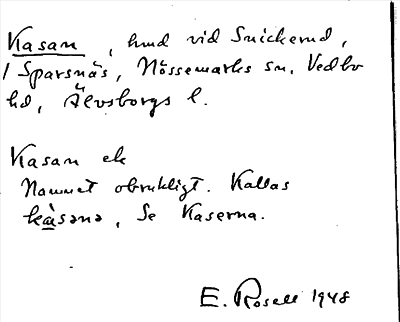 Kasan, hmd vid Snickerud,
/ Sparsnäs, Nössemarks sn. Vedbo
hd, Älvsborgs l.
Kasan ek
Namnet obrukligt. Kallas
kàsənə, Se Kaserna.
E. Rosell 1948